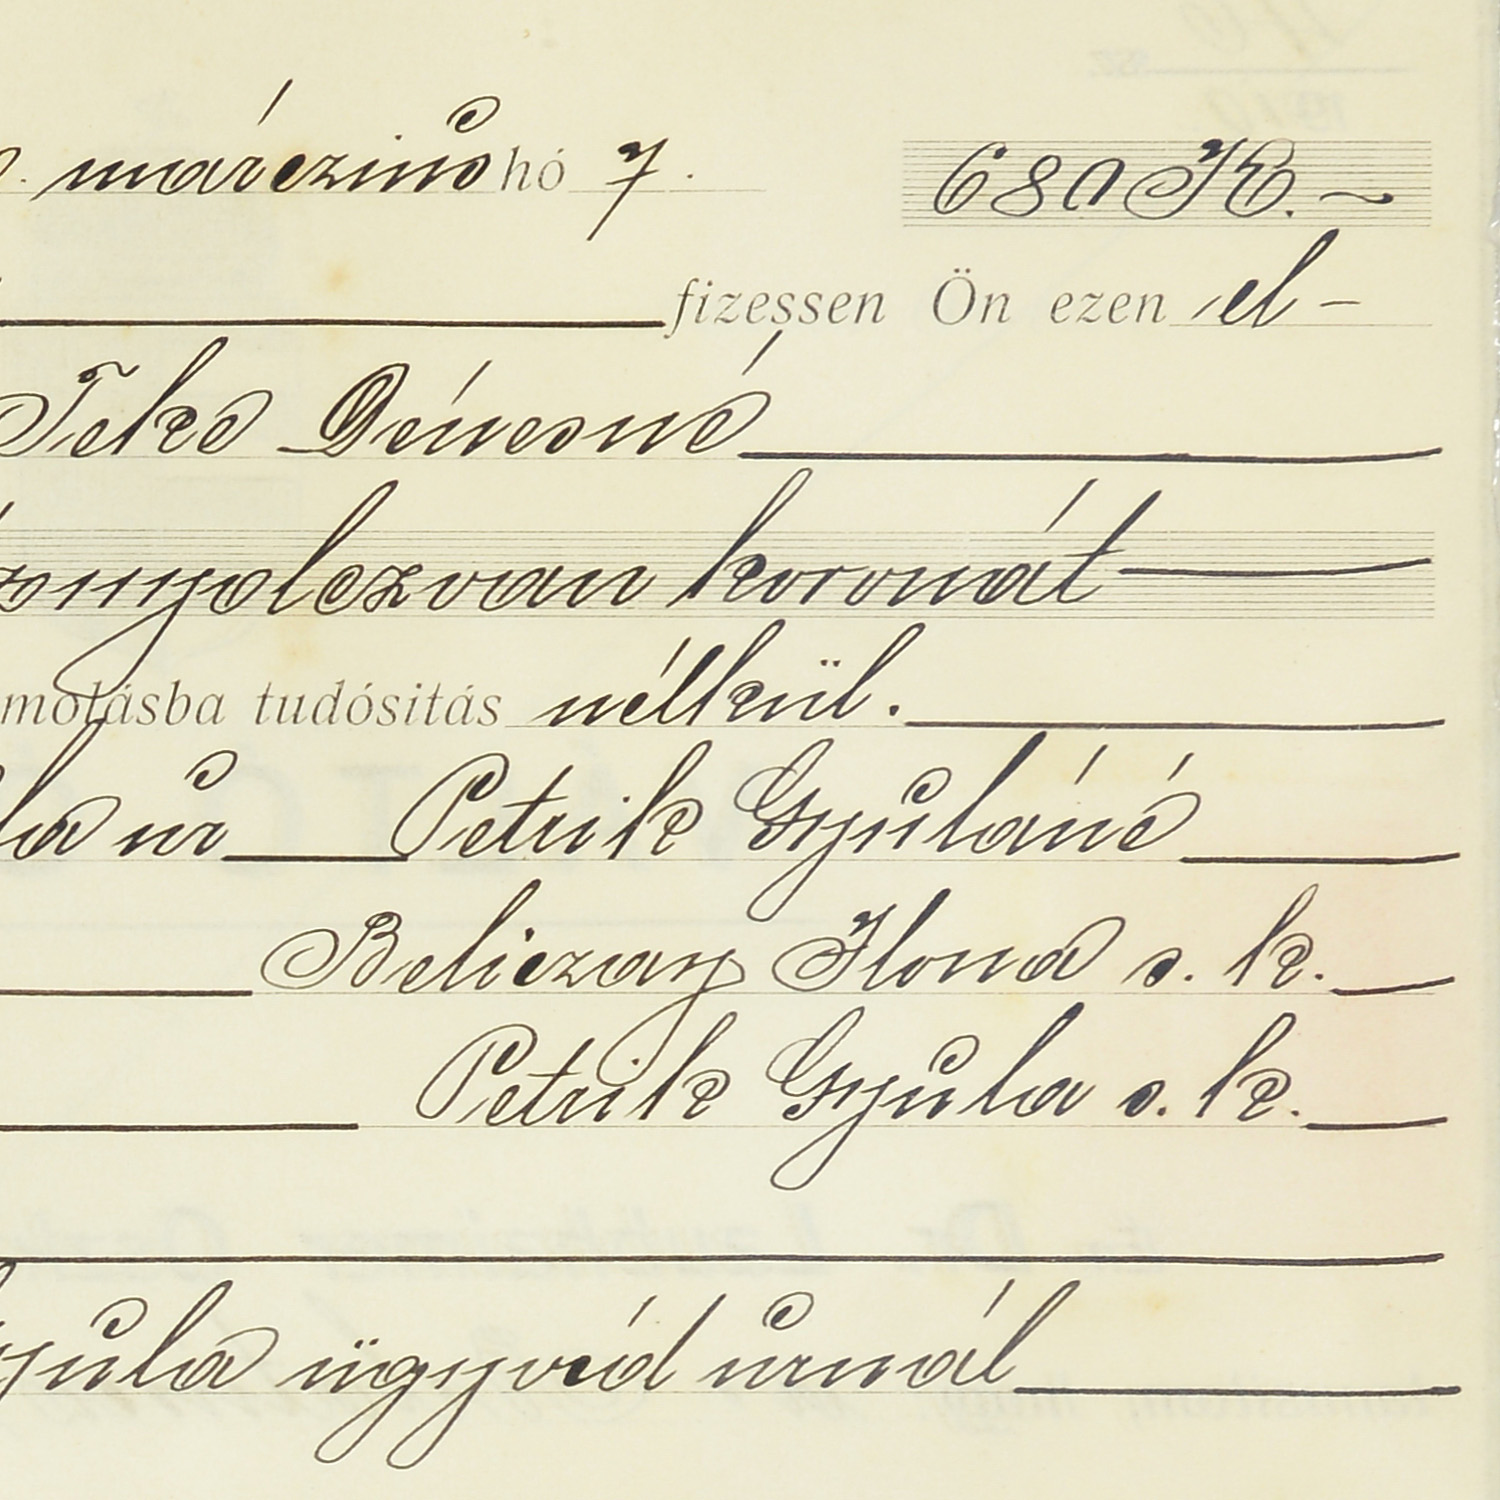 márczius hó 7. 680 K. ~
fizessen Ön ezen el-
Teke Dénesné
nyolczvan koronát
tudósitás nélkül.
úr Petrik Gyuláné
Beliczay Ilona s. k.
Petrik Gyula s. k.
ügyvéd úrnál